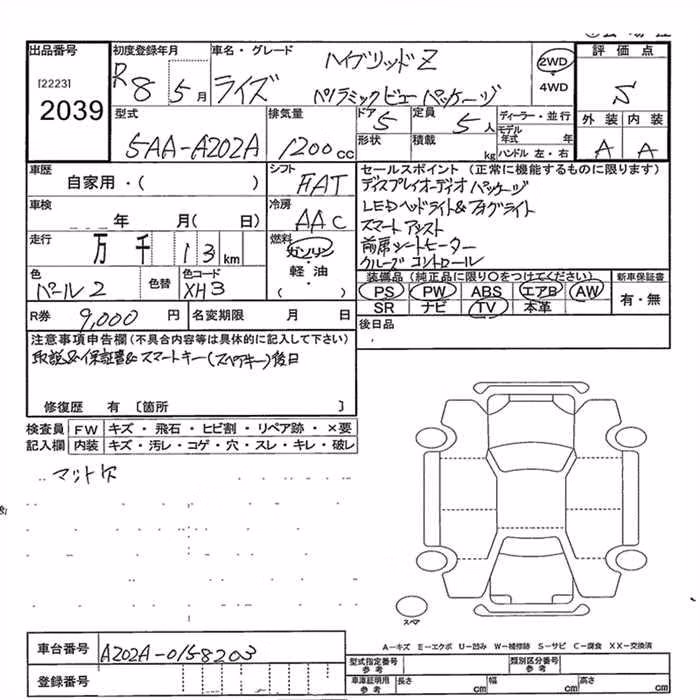 出品番号 初度登録年月 車名・グレード 評価点
[2223] 2039
R8 5月 ライズ ハイブリッドZ パノラミックビューパッケージ 2WD 4WD S
型式 5AA-A202A 排気量 1200cc ドア 5 定員 5人 ディーラー・並行 外装 内装
形状 積載 kg モデル年式 年 ハンドル 左・右 A A
車歴 自家用・( ) シフト FAT
車検 年 月( 日) 冷房 AAC
走行 万千13km 燃料 ガソリン・軽油・( )
色 パール2 色替 色コード XH3
R券 9,000円 名変期限 月 日
セールスポイント(正常に機能するものに限ります)
ディスプレイオーディオパッケージ
LEDヘッドライト&フォグライト
スマートアシスト
前席シートヒーター
クルーズコントロール
装備品(純正品に限り○をつけてください) 新車保証書
PS PW ABS エアB AW 有・無
SR ナビ TV 本革
後日品
注意事項申告欄(不具合内容等は具体的に記入して下さい)
取説&保証書&スマートキー(スペアキー)後日
修復歴 有 〔箇所 〕
検査員 FW キズ・飛石・ヒビ割・リペア跡・×要
記入欄 内装 キズ・汚レ・コゲ・穴・スレ・キレ・破レ
マット欠
スペア
A-キズ E-エクボ U-凹み W-補修跡 S-サビ C-腐食 XX-交換済
車台番号 A202A-0158203
登録番号
型式指定番号 参考 類別区分番号 参考
車庫証明用 参考 長さ cm 幅 cm 高さ cm